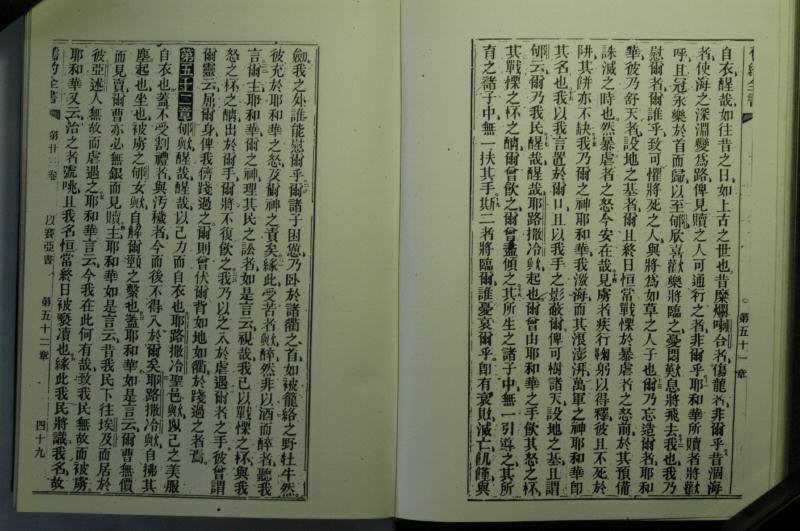 第五十一章
自衣醒哉如往昔之日如上古之世也昔糜爛喇合者傷龍者非爾乎昔涸海
者使海之深淵變爲路俾見贖之人可通行之者非爾乎耶和華所贖者將歡
呼且冠永樂於首而歸以至郇欣喜歡樂將臨之憂悶歎息將飛去我也我乃
慰爾者爾誰乎致可懼將死之人與將爲如草之人子也爾乃忘造爾者耶和
華彼乃舒天者設地之基者爾且終日恒常戰慄於暴虐者之怒前於其預備
誅滅之時也然暴虐者之怒今安在哉見虜者疾行鞠躬以得釋彼且不死於
阱其餅亦不缺我乃爾之神耶和華我潑海而其浪澎湃萬軍之神耶和華卽
其名也我以我言置於爾口且以我手之影蔽爾俾可樹諸天設地之基且謂
郇云爾乃我民醒哉醒哉耶路撒冷歟起也爾曾由耶和華之手飲其怒之杯
其戰慄之杯之爾曾飲之爾曾盡傾之其所生之諸子中無一引導之其所
育之諸子中無一扶其手斯二者將臨爾誰憂哀爾乎卽有衰敗滅亡飢饉與
劍我之外誰能慰爾乎爾諸子困憊乃臥於諸衢之首如被龍絡之野牡牛然
彼充於耶和華之怒及爾神之責矣緣此受苦者歟醉然非以酒而醉者聽我
言爾主耶和華爾之神理其民之訟者如是言云視哉我已以戰慄之杯與我
怒之杯之出於爾手爾將不復飲之我乃以之入於虐爾者之手彼曾謂
爾靈云屈爾身俾我儕踐過之爾則曾伏爾背如地如衢於踐過之者焉
第五十二章 郇歟醒哉醒哉以己力而自衣也耶路撒冷聖邑歟以己之美服
自衣也蓋不受割禮者與汚穢者今而後不得入於爾矣耶路撒冷歟自拂其
塵起也坐也被虜之郇女歟自解爾頸之繫也蓋耶和華如是言云爾曹無價
而見賣爾曹亦必無銀而見贖主耶和華如是言云昔我民下往埃及而居於
彼亞述人無故而虐遇之耶和華言云今我在此何有哉致我民無故而被虜
耶和華又云治之者號咷且我名恒常終日被褻瀆也緣此我民將識我名故
舊約全書 第廿三卷 以賽亞書 第五十二章 四十九